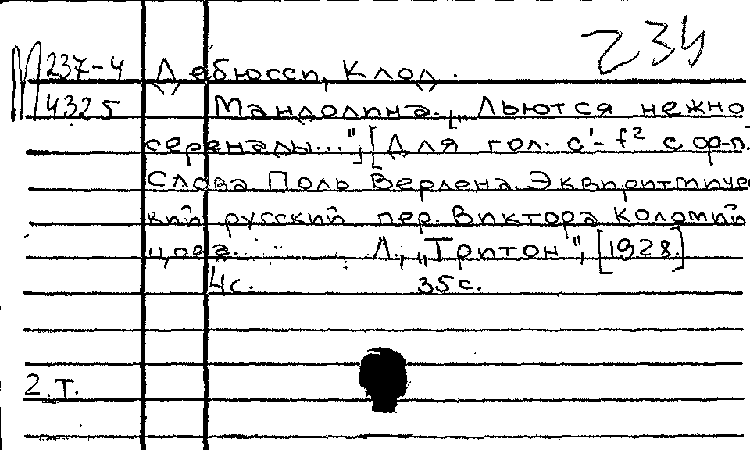 234
М 237-4 Дебюсси, Клод.
4325 Мандолина. „Льются нежно
серенады..."; [Для гол. c'-f² с ф-п.
Слова Поль Верлена. Эквиритмичес
кий русский пер. Виктора Коломий
цова. Л., „Тритон", [1928.]
4с. 35с.
2.Т.